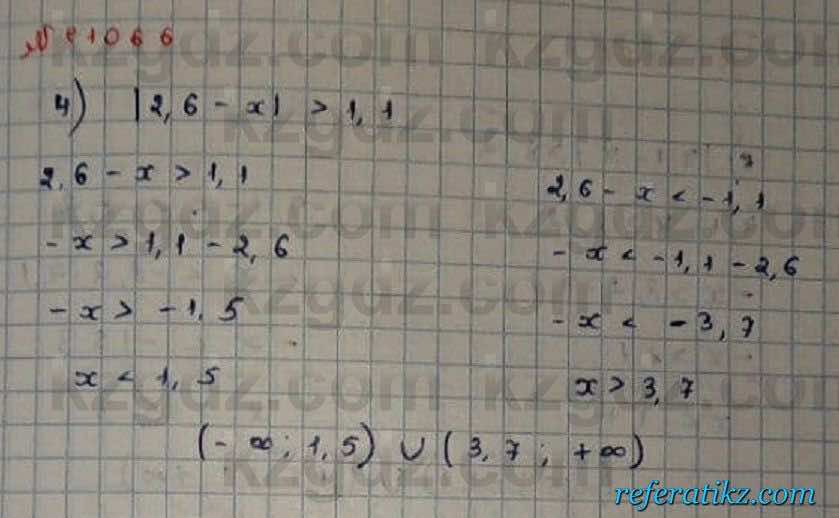 № 1066
4) |2,6 - x| > 1,1
2,6 - x > 1,1
- x > 1,1 - 2,6
- x > -1,5
x < 1,5
2,6 - x < -1,1
- x < -1,1 - 2,6
- x < -3,7
x > 3,7
(-∞; 1,5) ∪ (3,7; +∞)
kzgdz.com
kzgdz.com
kzgdz.com
kzgdz.com
kzgdz.com
referatikz.com